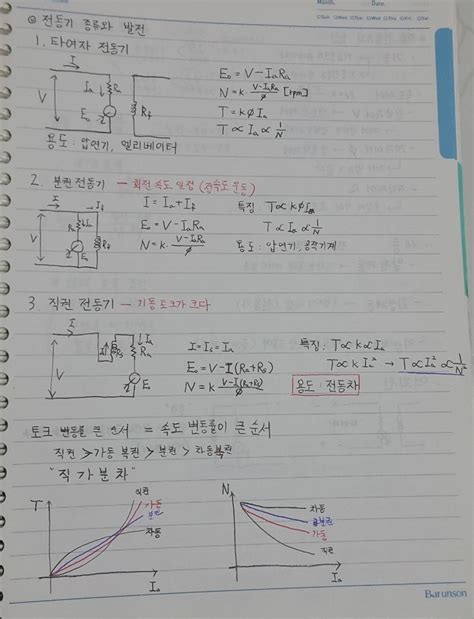 Month.
Date.
◎ 전동기 종류와 발전
1. 타여자 전동기
I
V
Ia
Ra
Eo
Rf
Eo = V - IaRa
N = k · (V-IaRa)/φ [rpm]
T = kφIa
T ∝ Ia ∝ 1/N
용도 : 압연기, 엘리베이터
2. 분권전동기 — 회전 속도 일정 (정속도 운동)
I
If
V
Ra
Ia
Rf
Eo
I = Ia + If
Eo = V - IaRa
N = k · (V-IaRa)/φ
특징 : T ∝ kφIa
T ∝ Ia ∝ 1/N
용도 : 압연기, 공작기계
3. 직권 전동기 — 기동토크가 크다
I
V
Rs
Ia
Ra
Eo
I = Is = Ia
Eo = V - I(Ra+Rs)
N = k (V-I(Ra+Rs))/φ
특징 : T ∝ k ∝ Ia
T ∝ k Ia² → T ∝ Ia² ∝ 1/N²
용도 : 전동차
토크 변동률 큰 순서 = 속도 변동률이 큰순서
직권 > 가동 복권 > 분권 > 차동복권
"직 가 분 차"
T
직권
가동
분권
차동
Ia
N
차동
분권
가동
직권
Ia
Barunson